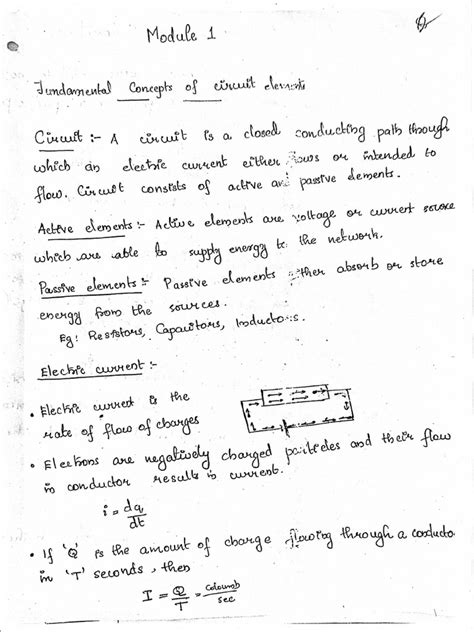 Module 1
Fundamental Concepts of circuit elements
Circuit :- A circuit is a closed conducting path through
which an electric current either flows or intended to
flow. Circuit consists of active and passive elements.
Active elements :- Active elements are voltage or current source
which are able to supply energy to the network.
Passive elements :- Passive elements either absorb or store
energy from the sources.
Eg: Resistors, Capacitors, Inductors.
Electric current :-
• Electric current is the
rate of flow of charges
• Electrons are negatively charged particles and their flow
in conductor results in current.
i = dq/dt
• If 'Q' is the amount of charge flowing through a conducto
in 'T' seconds, then
I = Q/T = coloumb/sec